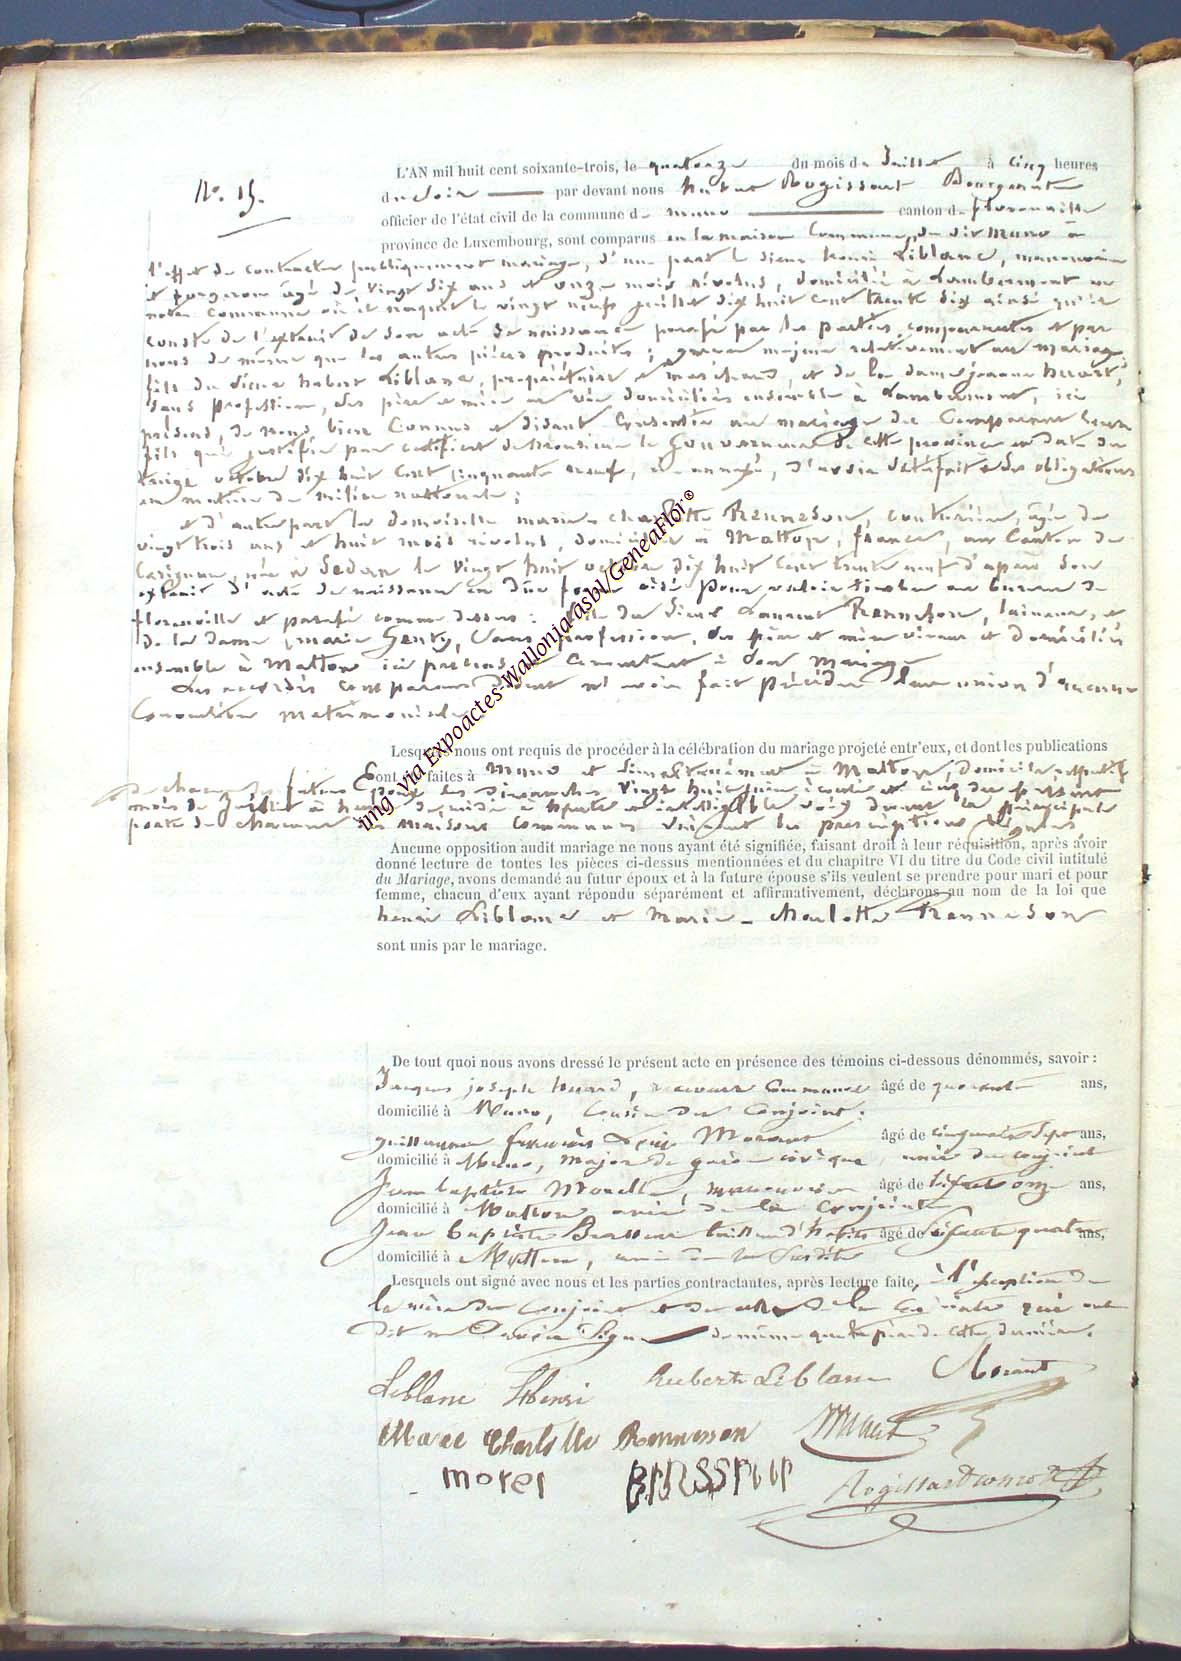 N°. 15.
L'AN mil huit cent soixante-trois, le quatorze du mois de Juillet à cinq heures
du soir par devant nous hubert Rogissart Bourgmestre
officier de l'état civil de la commune de muno canton de florenville
province de Luxembourg, sont comparus en la maison Commune de dit Muno à
l'effet de contracter publiquement mariage, d'une part le sieur henri Leblanc, manoeuvre
et forgeron âgé de vingt six ans et onze mois révolus, domicilié à Lambermont
notre Commune où il naquit le vingt neuf juillet dix huit cent trente six ainsi qu'il
conste de l'extrait de son acte de naissance parafé par les parties comparantes et par
nous de même que les autres pièces produites; majeur relativement au mariage,
fils du sieur hubert Leblanc, propriétaire et marchand, et de la dame jeanne huart,
sans profession, ses père et mère domiciliés ensemble à Lambermont, ici
présens, de nous bien Connus et disant Consentir au mariage du Comparant leur
fils qui justifie par certificat de Monsieur le Gouverneur de cette province en date du
octobre dix huit Cent Cinquante neuf, annexé, d'avoir satisfait à ses obligations
en matière de milice nationale;
et d'autre part la demoiselle marie charlotte Rennesson, couturière, âgée de
vingt trois ans et huit mois révolus, domiciliée à Matton, france, au Canton de
Carignan, née à Sedan le vingt huit octobre dix huit Cent trente neuf d'après son
extrait d'acte de naissance en due forme visé pour valoir timbre au bureau de
florenville et parafé comme dessus: fille du sieur Laurent Rennesson, et
de la dame marie Genty, sans profession, ses père et mère vivans et domiciliés
ensemble à Matton ici présens et Consentant à son mariage
Les accordés Comparans disent n'avoir fait précéder leur union d'aucune
Convention Matrimoniale.
Lesquels nous ont requis de procéder à la célébration du mariage projeté entr'eux, et dont les publications
sont faites à Muno et simultanément à Matton, domicile respectif
de chacun des futurs époux les dimanches vingt huit juin écoulé et cinq du présent
mois de Juillet à heure de midi à haute et intelligible voix devant la principale
porte de chacune des maisons communes suivant les prescriptions légales.
Aucune opposition audit mariage ne nous ayant été signifiée, faisant droit à leur réquisition, après avoir
donné lecture de toutes les pièces ci-dessus mentionnées et du chapitre VI du titre du Code civil intitulé
du Mariage, avons demandé au futur époux et à la future épouse s'ils veulent se prendre pour mari et pour
femme, chacun d'eux ayant répondu séparément et affirmativement, déclarons au nom de la loi que
henri Leblanc et Marie - Charlotte Rennesson
sont unis par le mariage.
De tout quoi nous avons dressé le présent acte en présence des témoins ci-dessous dénommés, savoir :
Jacques joseph huard, receveur Communal âgé de quarante ans,
domicilié à Muno, Cousin du Conjoint;
guillaume françois Morant âgé de cinquante sept ans,
domicilié à Muno, Major de garde civique, ami du conjoint
Jean baptiste Morelle, manoeuvre âgé de ans,
domicilié à Matton ami de la Conjointe
Jean baptiste Brasseur tailleur d'habits âgé de quatre ans,
domicilié à Matton, ami de la susdite
Lesquels ont signé avec nous et les parties contractantes, après lecture faite, à l'exception de
la mère du Conjoint et de celle de la Conjointe qui ont
dit ne savoir signer de même que le père de cette dernière.
Leblanc Henri Hubert Leblanc Morant
Marie Charlotte Rennesson Huart
morel BRASSEUR Rogissart
img via Expoactes-Wallonia asbl/GeneaFlor®